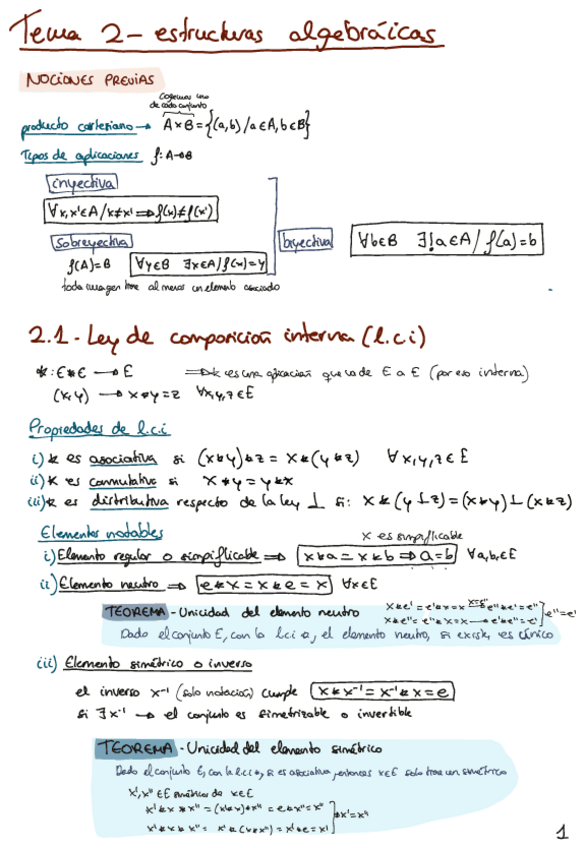 Tema 2 - estructuras algebráicas
NOCIONES PREVIAS
Cogemos uno
de cada conjunto
producto cartesiano → A×B = {(a,b) / a∈A, b∈B}
Tipos de aplicaciones f: A→B
inyectiva
∀x,x'∈A / x≠x' ⇒ f(x)≠f(x')
sobreyectiva
f(A)=B ∀y∈B ∃x∈A / f(x)=y
toda imagen tiene al menos un elemento asociado
biyectiva ∀b∈B ∃!a∈A / f(a)=b
2.1 - Ley de composición interna (l.c.i)
* : E*E → E ⇒ * es una aplicación que va de E a E (por eso interna)
(x,y) → x*y=z ∀x,y,z∈E
Propiedades de l.c.i
i) * es asociativa si (x*y)*z = x*(y*z) ∀x,y,z∈E
ii) * es conmutativa si x*y = y*x
iii) * es distributiva respecto de la ley ⊥ si: x*(y⊥z) = (x*y)⊥(x*z)
Elementos notables
x es simplificable
i) Elemento regular o simplificable ⇒ x*a = x*b ⇒ a=b ∀a,b,∈E
ii) Elemento neutro ⇒ e*x = x*e = x ∀x∈E
TEOREMA - Unicidad del elemento neutro
x*e' = e'*x = x x=e'' e''*e'=e''
x*e'' = e''*x = x → e'*e''=e' ] e''=e'
Dado el conjunto E, con la l.c.i *, el elemento neutro, si existe, es único
iii) Elemento simétrico o inverso
el inverso x⁻¹ (solo notación) cumple x*x⁻¹ = x⁻¹*x = e
si ∃x⁻¹ → el conjunto es simetrizable o invertible
TEOREMA - Unicidad del elemento simétrico
Dado el conjunto E, con la l.c.i *, si es asociativa, entonces x∈E solo tiene un simétrico
x',x''∈E simétricos de x∈E
x'*x*x'' = (x'*x)*x'' = e*x'' = x''
x'*x*x'' = x'*(x*x'') = x'*e = x' ] x'=x''
1